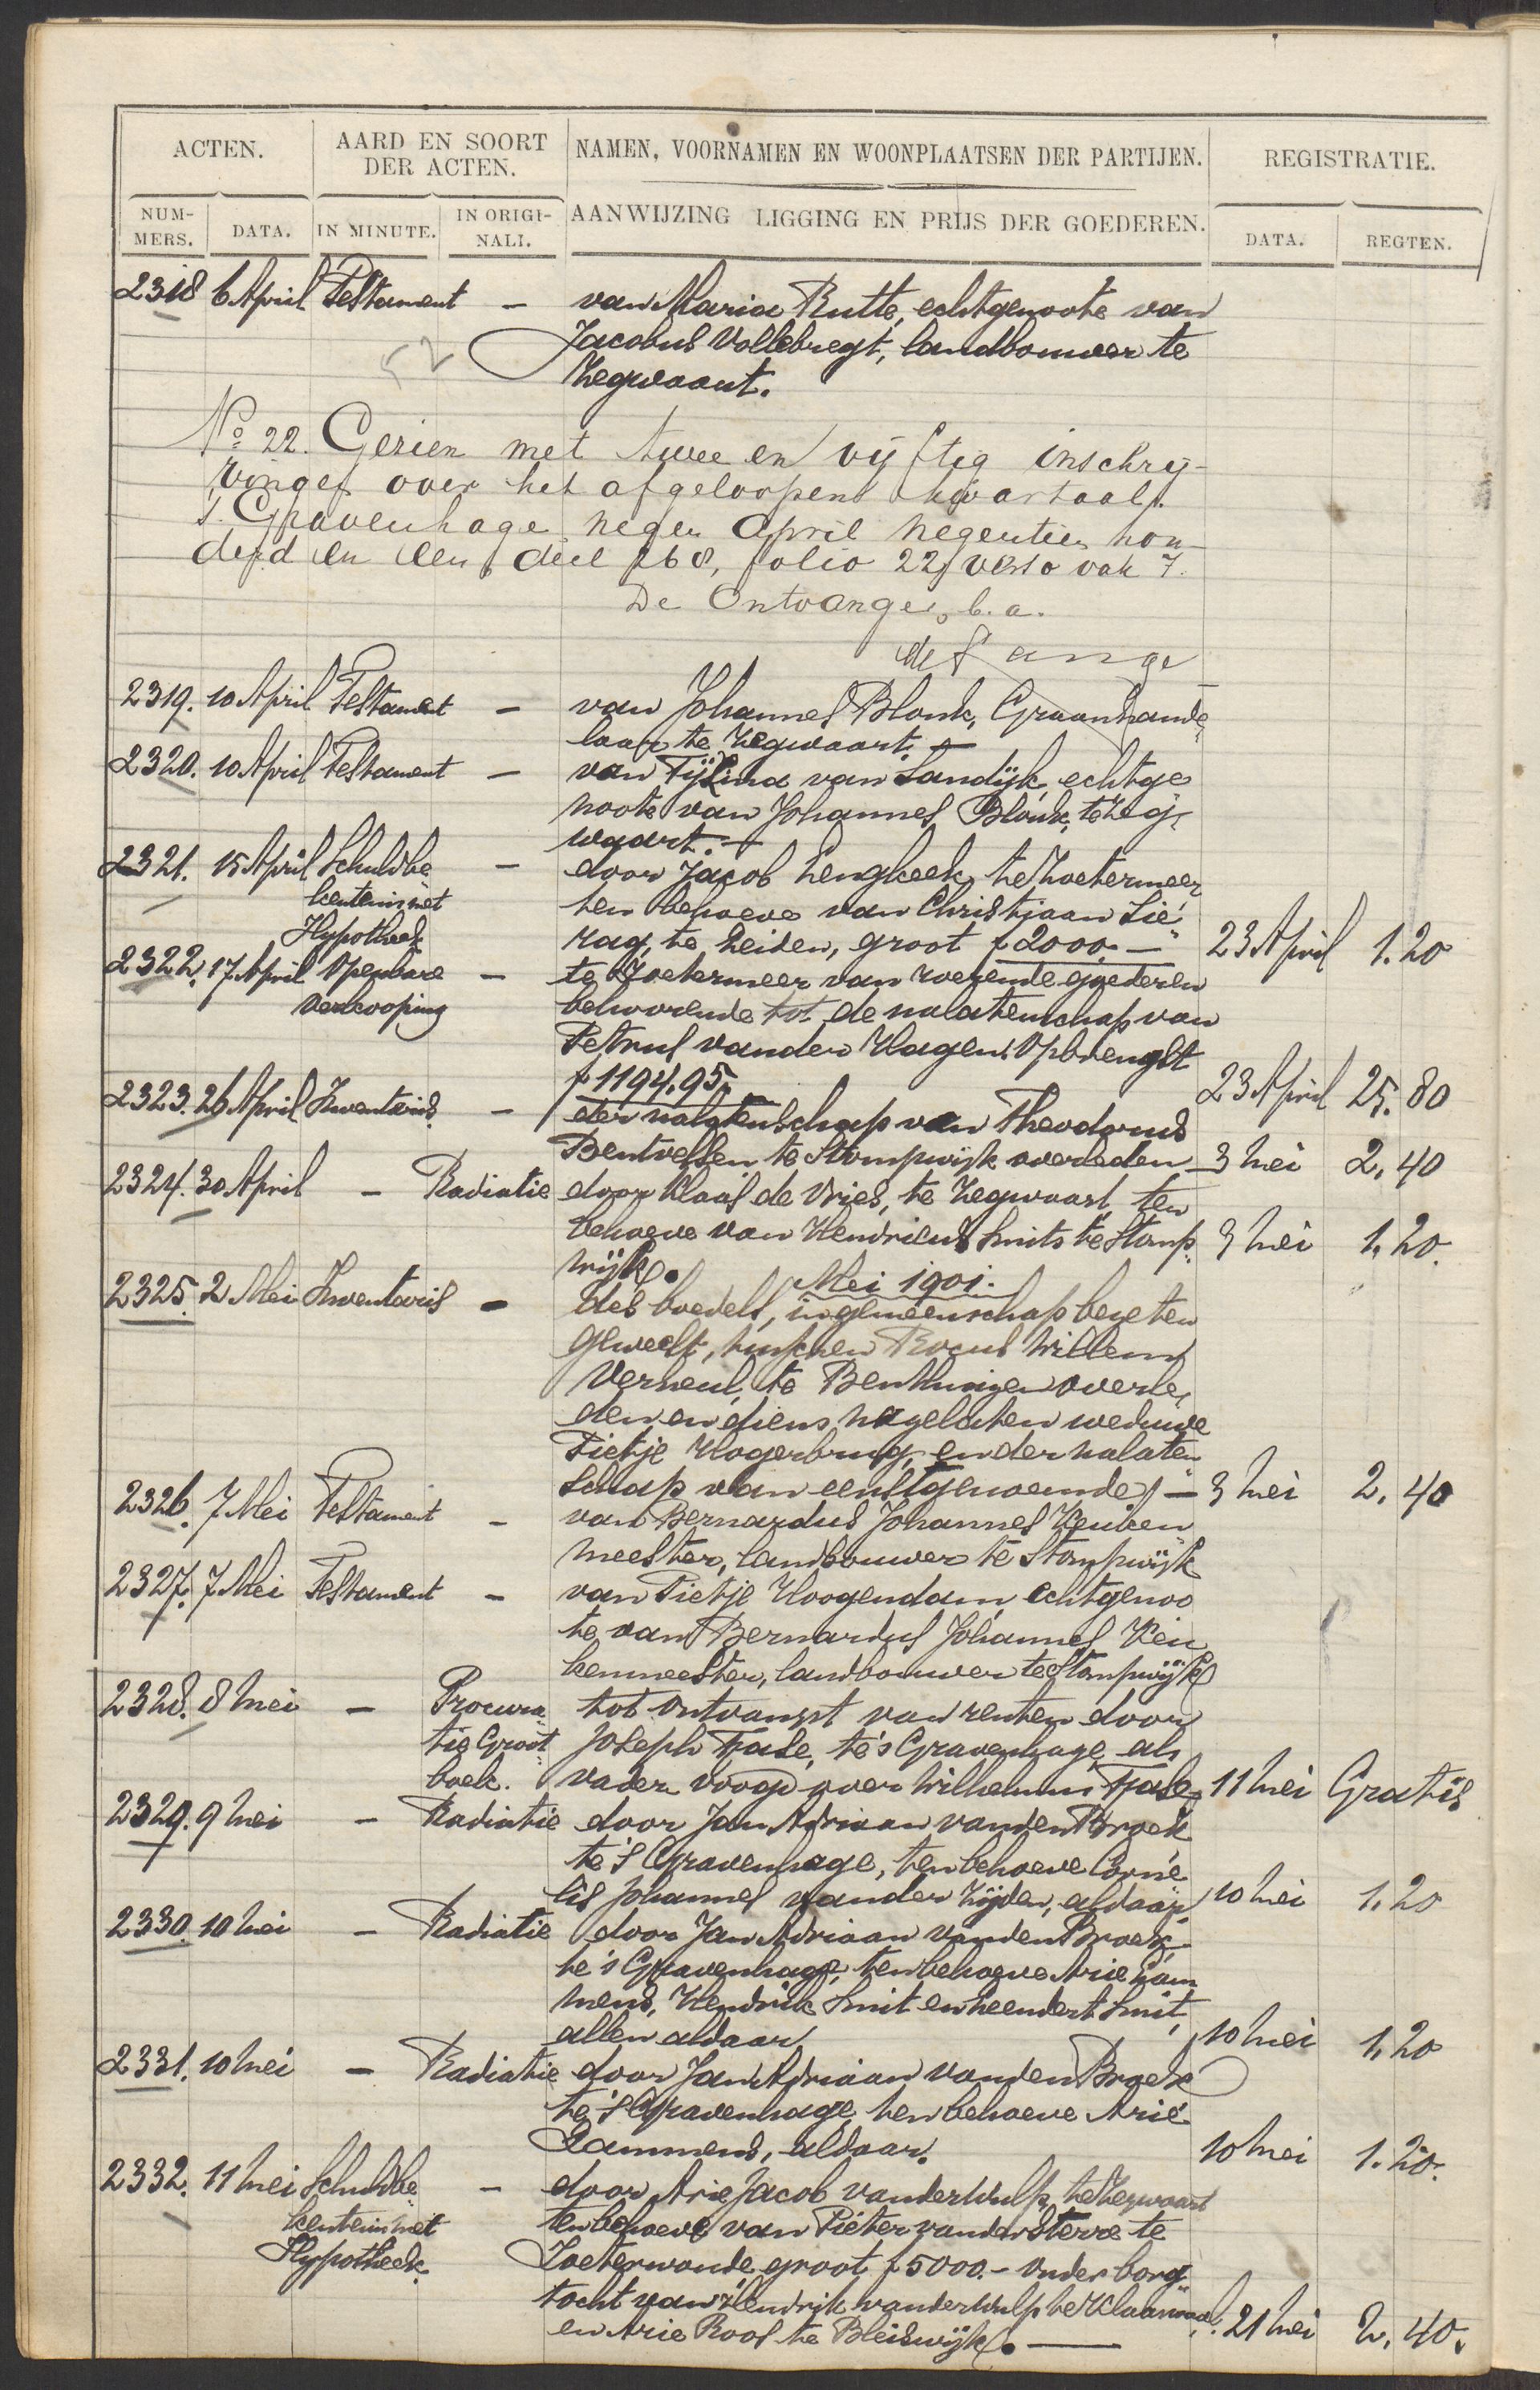 ACTEN.
AARD EN SOORT
DER ACTEN.
NAMEN, VOORNAMEN EN WOONPLAATSEN DER PARTIJEN.
REGISTRATIE.
NUM-
MERS.
DATA.
IN MINUTE.
IN ORIGI-
NALI.
AANWIJZING LIGGING EN PRIJS DER GOEDEREN.
DATA.
REGTEN.
2318 6 April Testament – van Maria Rutte, echtgenoote van
Jacobus Vollebregt, landbouwer te
Zegwaart.
52
No 22. Gezien met twee en vijftig inschrij-
vingen over het afgeloopen kwartaal.
's Gravenhage negen April negentien hon-
derd en een, deel 268, folio 22 verso vak 7.
De Ontvanger, b. a.
de Lange
2319. 10 April Testament – van Johannes Blonk, Graanhande
laar te Zegwaart. –
2320. 10 April Testament – van Tijsina van Sandijk, echtge
noote van Johannes Blonk, te Zeg
waart. –
2321. 15 April Schuldbe – door Jacob Lengkeek, te Zoetermeer
kentenis met ten behoeve van Christiaan Lie
Hypotheek rag, te Leiden, groot f 2000.– 23 April 1.20
2322. 17 April Openbare – te Zoetermeer van roerende goederen
verkooping behoorende tot de nalatenschap van
Petrus van der Hagen. Opbrengst
f 1194.95. 23 April 25.80
2323. 26 April Inventaris. – der nalatenschap van Theodorus
Bentvelsen te Stompwijk overleden 3 Mei 2.40
2324. 30 April – Radiatie door Klaas de Vries, te Zegwaart, ten
behoeve van Hendricus Smits te Stomp 3 Mei 1.20.
wijk.
Mei 1901.
2325. 2 Mei Inventaris – des boedels, in gemeenschap bezeten
geweest, tusschen Rocus Willem
Verheul, te Benthuizen overle
den en diens nagelaten weduwe
Pietje Hogerbrug, en der nalaten
schap van eerstgenoemde. – 3 Mei 2.40
2326. 7 Mei Testament – van Bernardus Johannes Keuken
meester, landbouwer te Stompwijk
2327. 7 Mei Testament – van Pietje Hoogendam, echtgenoo
te van Bernardus Johannes Keu
kenmeester, landbouwer te Stompwijk
2328. 8 Mei – Procura tot ontvangst van renten door
tie Groot Joseph Tjade, te 's Gravenhage, als
boek. vader voogd over Wilhelmus Tjade, 11 Mei Gratis
2329. 9 Mei – Radiatie door Jan Adriaan van den Broek
te 's Gravenhage, ten behoeve Corne
lis Johannes van der Zijden, aldaar 10 Mei 1.20
2330. 10 Mei – Radiatie door Jan Adriaan van den Broek,
te 's Gravenhage, ten behoeve Arie Lam
mens, Hendrik Smit en Leendert Smit,
allen aldaar 10 Mei 1.20
2331. 10 Mei – Radiatie door Jan Adriaan van den Broek
te 's Gravenhage, ten behoeve Arie
Lammens, aldaar. 10 Mei 1.20.
2332. 11 Mei Schuldbe – door Arie Jacob van der Wulp, te Zegwaart
kentenis met ten behoeve van Pieter van der Sterre te
Hypotheek. Zoeterwoude groot f 5000.– onder borg
tocht van Hendrik van der Wulp te
en Arie Roos te Bleiswijk. – 21 Mei 2.40.